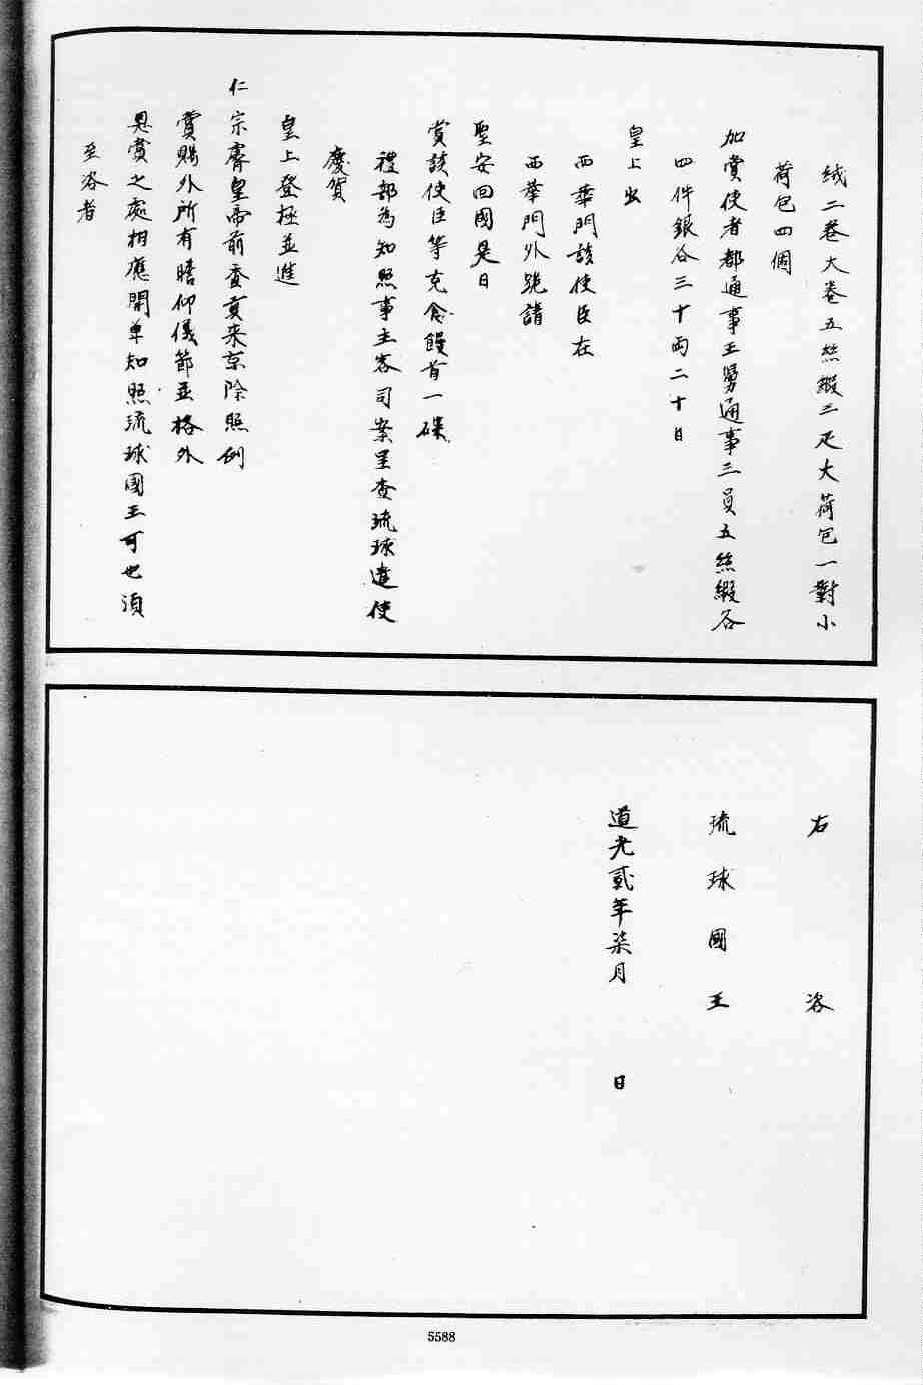 絨二卷大卷五絲緞二疋大荷包一對小
荷包四個
加賞使者都通事王舅通事三員五絲緞各
四件銀各三十兩二十日
皇上出
西華門該使臣在
西華門外跪請
聖安回國是日
賞該使臣等克食饅首一碟
禮部為知照事主客司案呈查琉球遣使
慶賀
皇上登極並進
仁宗睿皇帝前香貢來京除照例
賞賜外所有瞻仰儀節並格外
恩賞之處相應開單知照流球國王可也須
至咨者
右咨
琉球國王
道光貳年柒月 日
5588